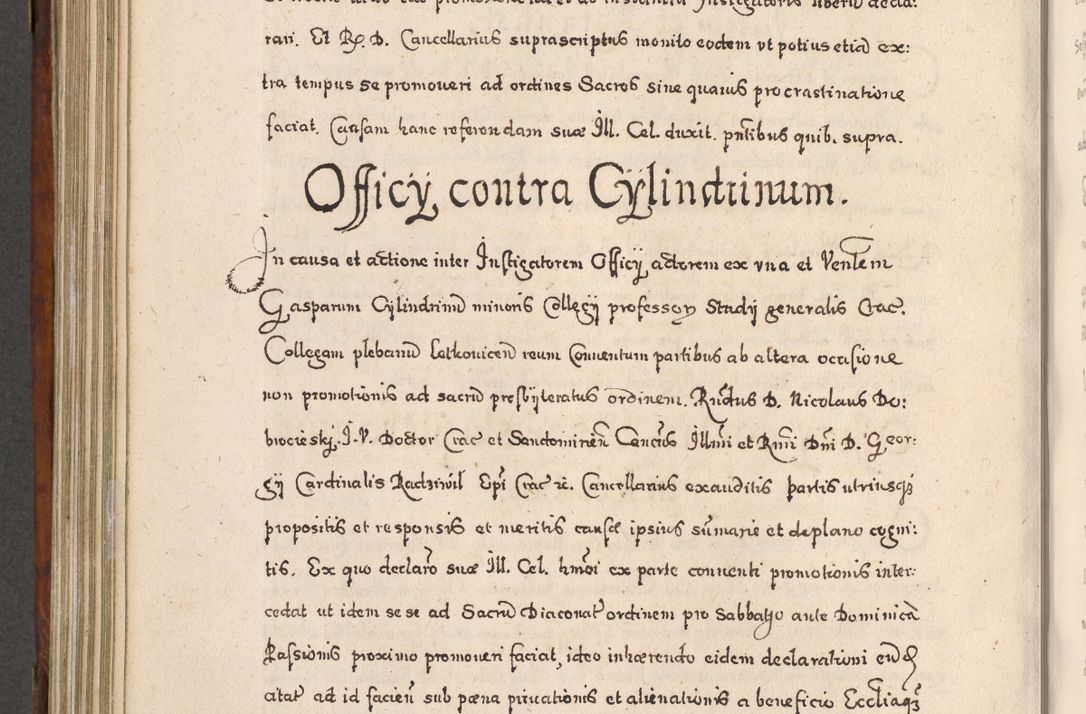 rari. Et R. D. Cancellarius suprascriptus monito eodem vt potius etiã ex:
tra tempus se promoueri ad ordines Sacros sine quauis procrastinatione
faciat. Causam hanc referendam suæ Ill. Cel. duxit. pñtibus quib. supra.
Officij contra Cÿlindrinum.
In causa et actione inter Instigatorem Officij actorem ex vna et Venlem
Gasparum Cÿlindrinũ minoris Collegij professorẽ Studij generalis Crac.
Collegam plebanũ Letkouicen̄ reum Conuentum partibus ab altera occasione
non promotionis ad sacrũ presbÿteratus ordinem. Rñdus D. Nicolaus Do:
brocieskj. I. V. Doctor Crac et Sandomirien̄ Cancus Illmi et Rmi Dñi D. Geor:
gij Cardinalis Radziwil Epi Crac etc. Cancellarius exauditis partis utriusqꝫ
propositis et responsis et meritis causæ ipsius sũmarie et de plano cogni:
tis. Ex quo declaro suæ Ill. Cel. hmoi ex parte conuenti promotionis inter:
cedat ut idem se se ad Sacrũ Diaconat ordinem pro Sabbatho ante Dominicã
Passionis proximo promoueri faciat, ideo inhærendo eidem declarationi eũd
citat ad id facien̄ sub pœna priuationis et alienationis a beneficio Eccliaqꝫ